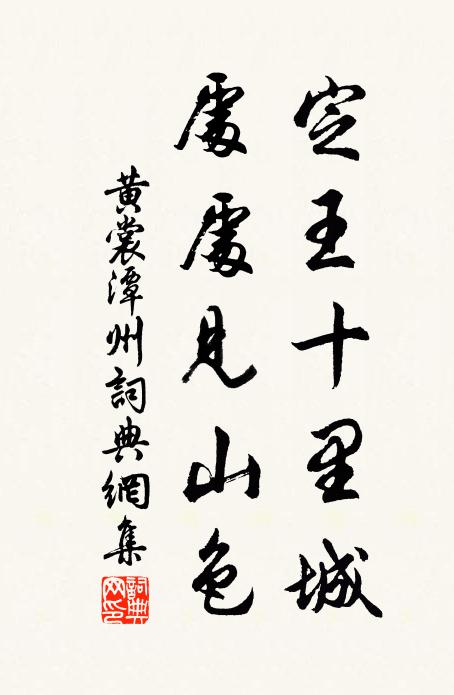 定王十里城
處處見山色
黃裳潭州詞典網集
詞典網印